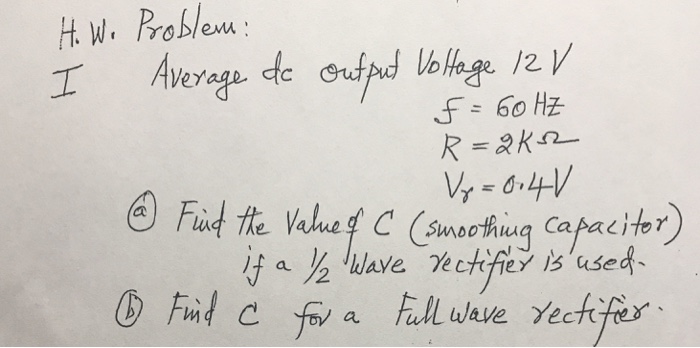 H. W. Problem:
I Average dc output Voltage 12 V
f = 60 HZ
R = 2KΩ
Vr = 0.4V
(a) Find the Value of C (smoothing capacitor)
if a 1/2 Wave rectifier is used.
(b) Find C for a Full wave rectifier.